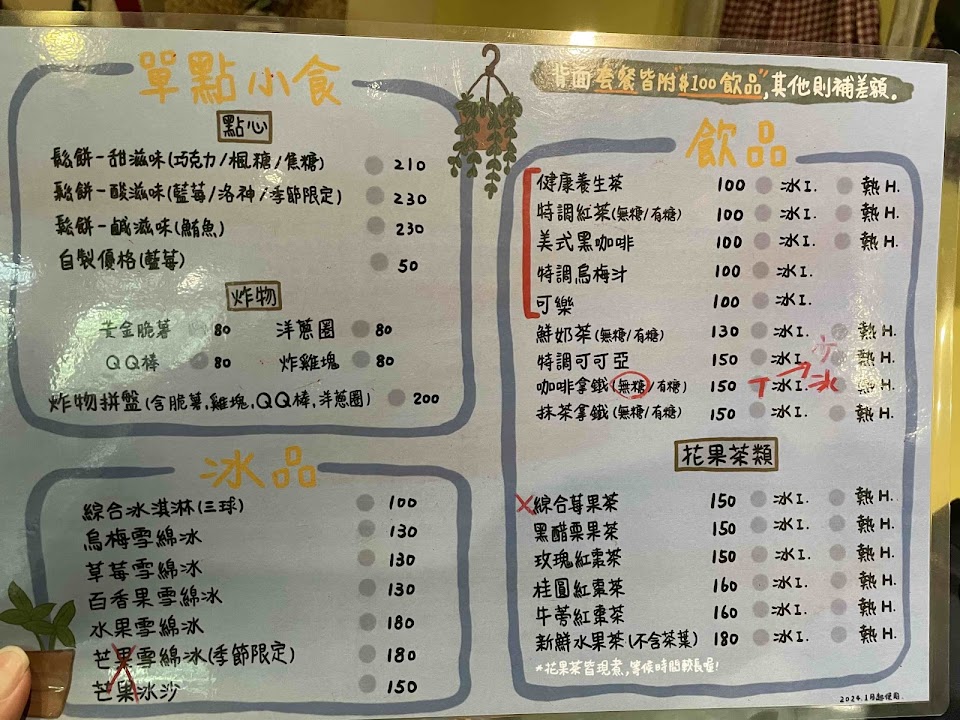 單點小食
點心
鬆餅-甜滋味(巧克力/楓糖/焦糖) 210
鬆餅-酸滋味(藍莓/洛神/季節限定) 230
鬆餅-鹹滋味(鮪魚) 230
自製優格(藍莓) 50
炸物
黃金脆薯 80 洋蔥圈 80
QQ棒 80 炸雞塊 80
炸物拼盤(含脆薯,雞塊,QQ棒,洋蔥圈) 200
冰品
綜合冰淇淋(三球) 100
烏梅雪綿冰 130
草莓雪綿冰 130
百香果雪綿冰 130
水果雪綿冰 180
芒果雪綿冰(季節限定) 180
芒果冰沙 150
背面套餐皆附"$100飲品",其他則補差額.
飲品
健康養生茶 100 冰I. 熱H.
特調紅茶(無糖/有糖) 100 冰I. 熱H.
美式黑咖啡 100 冰I. 熱H.
特調烏梅汁 100 冰I.
可樂 100 冰I.
鮮奶茶(無糖/有糖) 130 冰I. 熱H.
特調可可亞 150 冰I. 熱H.
咖啡拿鐵(無糖/有糖) 150 冰I. 冰 熱H.
抹茶拿鐵(無糖/有糖) 150 冰I. 熱H.
花果茶類
綜合莓果茶 150 冰I. 熱H.
黑醋栗果茶 150 冰I. 熱H.
玫瑰紅棗茶 150 冰I. 熱H.
桂圓紅棗茶 160 冰I. 熱H.
牛蒡紅棗茶 160 冰I. 熱H.
新鮮水果茶(不含茶葉) 180 冰I. 熱H.
*花果茶皆現煮,等候時間較長喔!
2024.1月起使用.